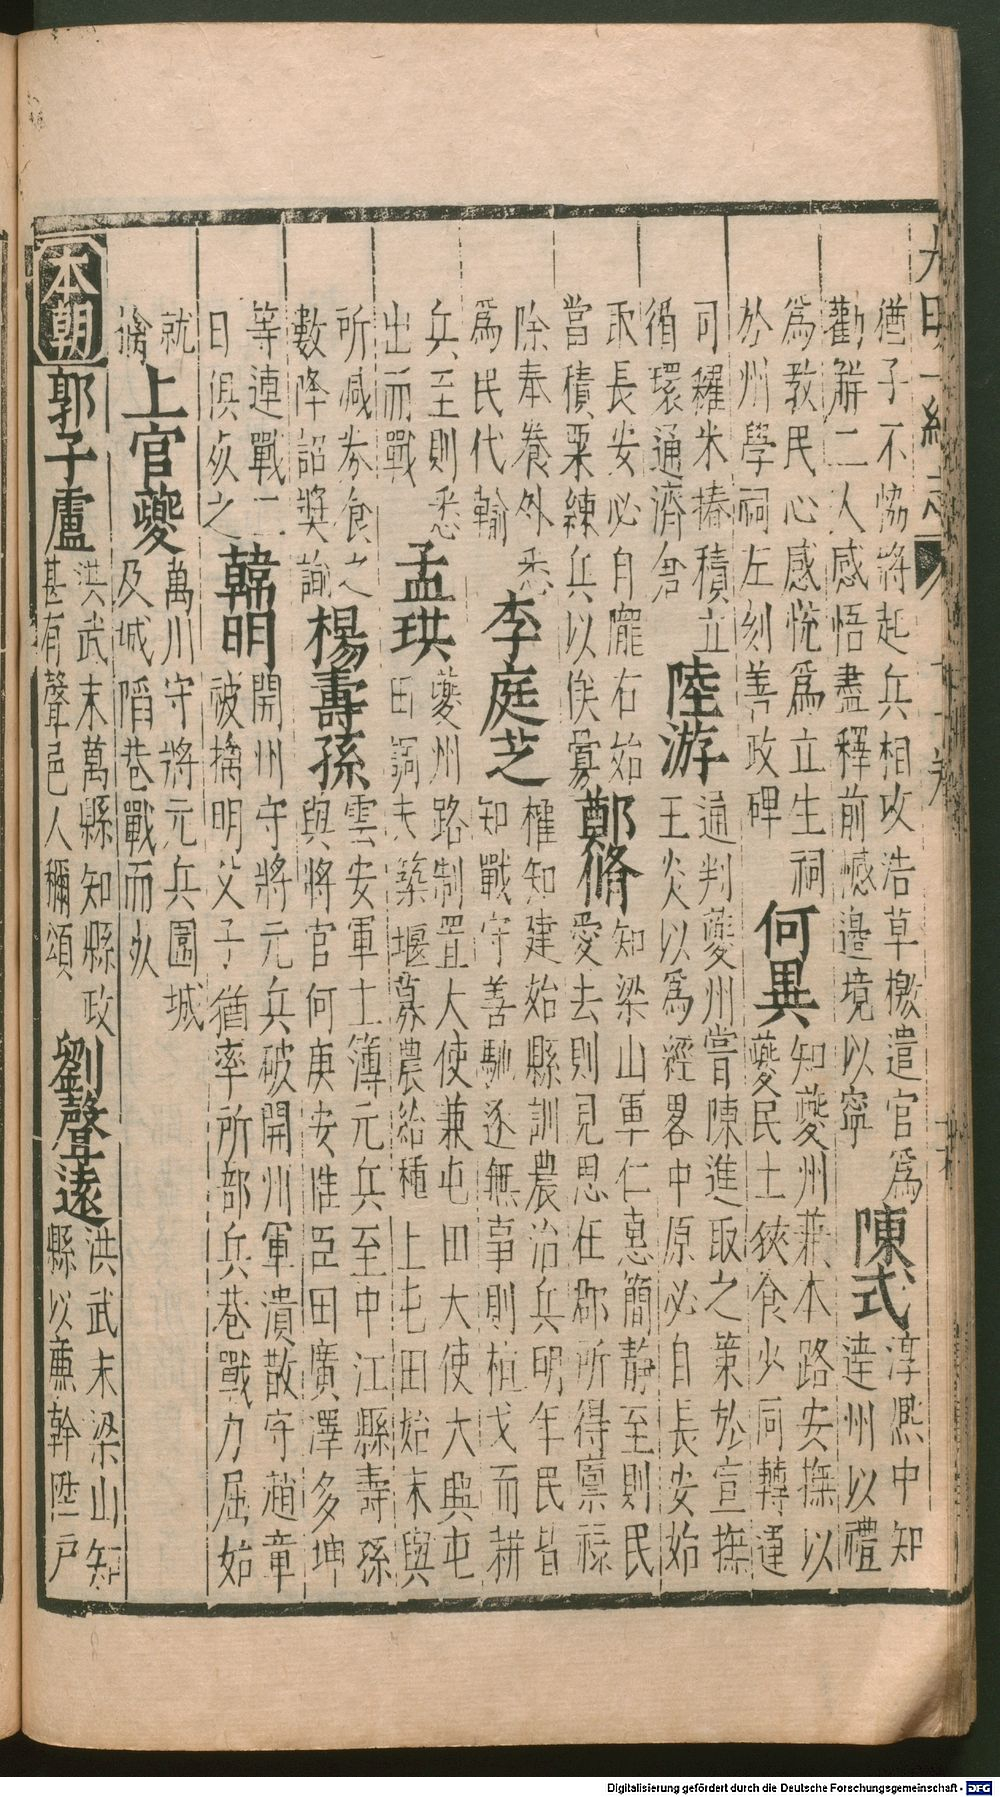 大明一統志
猶子不恊將起兵相攻浩草檄遣官為
勸解二人感悟盡釋前憾邊境以寧
陳式
淳熈中知
達州以禮
為教民心感悅為立生祠
於州學祠左刻善政碑
何異
知夔州兼本路安撫以
夔民土狹食少同轉運
司糴米樁積立
循環通濟倉
陸游
通判夔州嘗陳進取之策於宣撫
王炎以為經畧中原必自長安始
取長安必自隴右始
當積粟練兵以俟釁
鄭脩
知梁山軍仁惠簡靜至則民
愛去則見思在郡所得廪祿
除奉養外悉
為民代輸
李庭芝
權知建始縣訓農治兵明年民皆
知戰守善馳逐無事則植戈而耕
兵至則悉
出而戰
孟珙
夔州路制置大使兼屯田大使大興屯
田調夫築堰募農給種 上屯田始末與
所减券食之
數降詔奬諭
楊壽孫
雲安軍士簿元兵至中江縣壽孫
與將官何庚安惟臣田廣澤多坤
等連戰二
日俱死之
韓明
開州守將元兵破開州軍潰散守趙章
被擒明父子猶率所部兵巷戰力屈始
就
擒
上官夔
萬川守將元兵圍城
及城陷巷戰而死
本朝
郭子盧
洪武末萬縣知縣政
甚有聲邑人稱頌
劉聲遠
洪武末梁山知
縣以廉幹陞戶
Digitalisierung gefördert durch die Deutsche Forschungsgemeinschaft - DFG